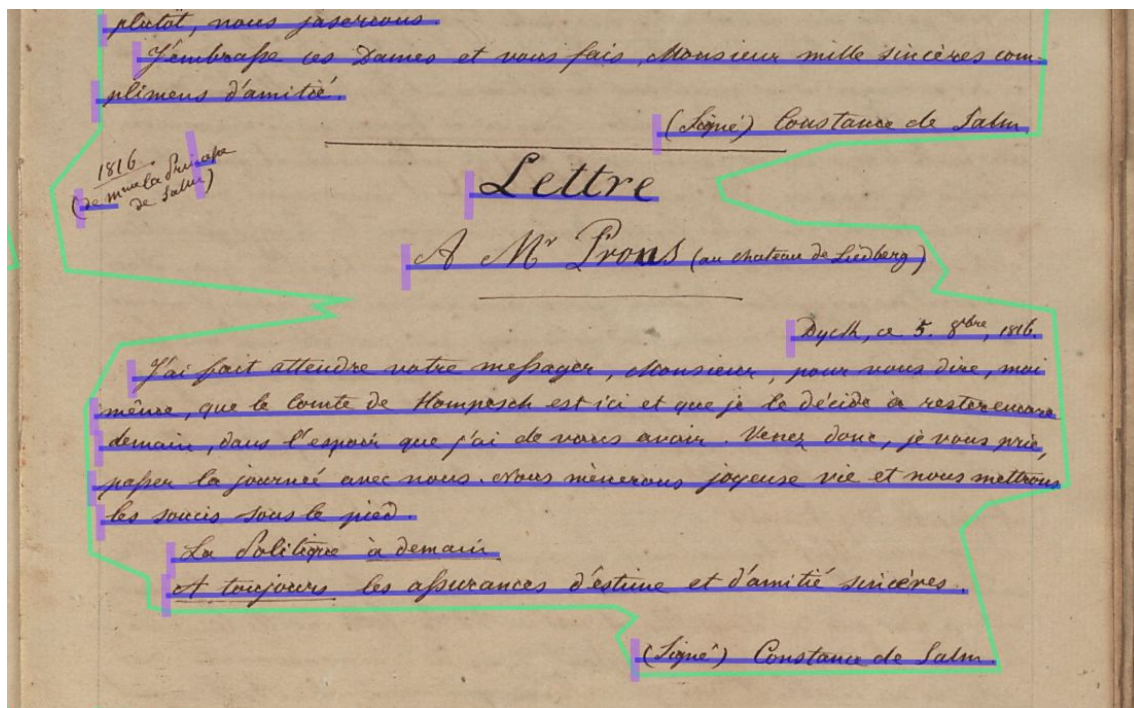 plutôt, nous jaserons.
J'embrasse ces Dames et vous fais, Monsieur mille sincères com-
plimens d'amitié.
(Signé) Constance de Salm.
1816.
(de Mme la Princesse
de Salm)
Lettre
A Mr Prous (au chateau de Liedberg)
Dyck, ce 5. 8bre, 1816.
J'ai fait attendre votre messager, Monsieur, pour vous dire, moi
même, que le Comte de Hompesch est ici et que je le décide à rester encore
demain, dans l'espoir que j'ai de vous avoir. Venez donc, je vous prie,
passer la journée avec nous. Nous mènerons joyeuse vie et nous mettrons
les soucis sous le pied.
La Politique à demain
A toujours les assurances d'estime et d'amitié sincères.
(Signé) Constance de Salm.